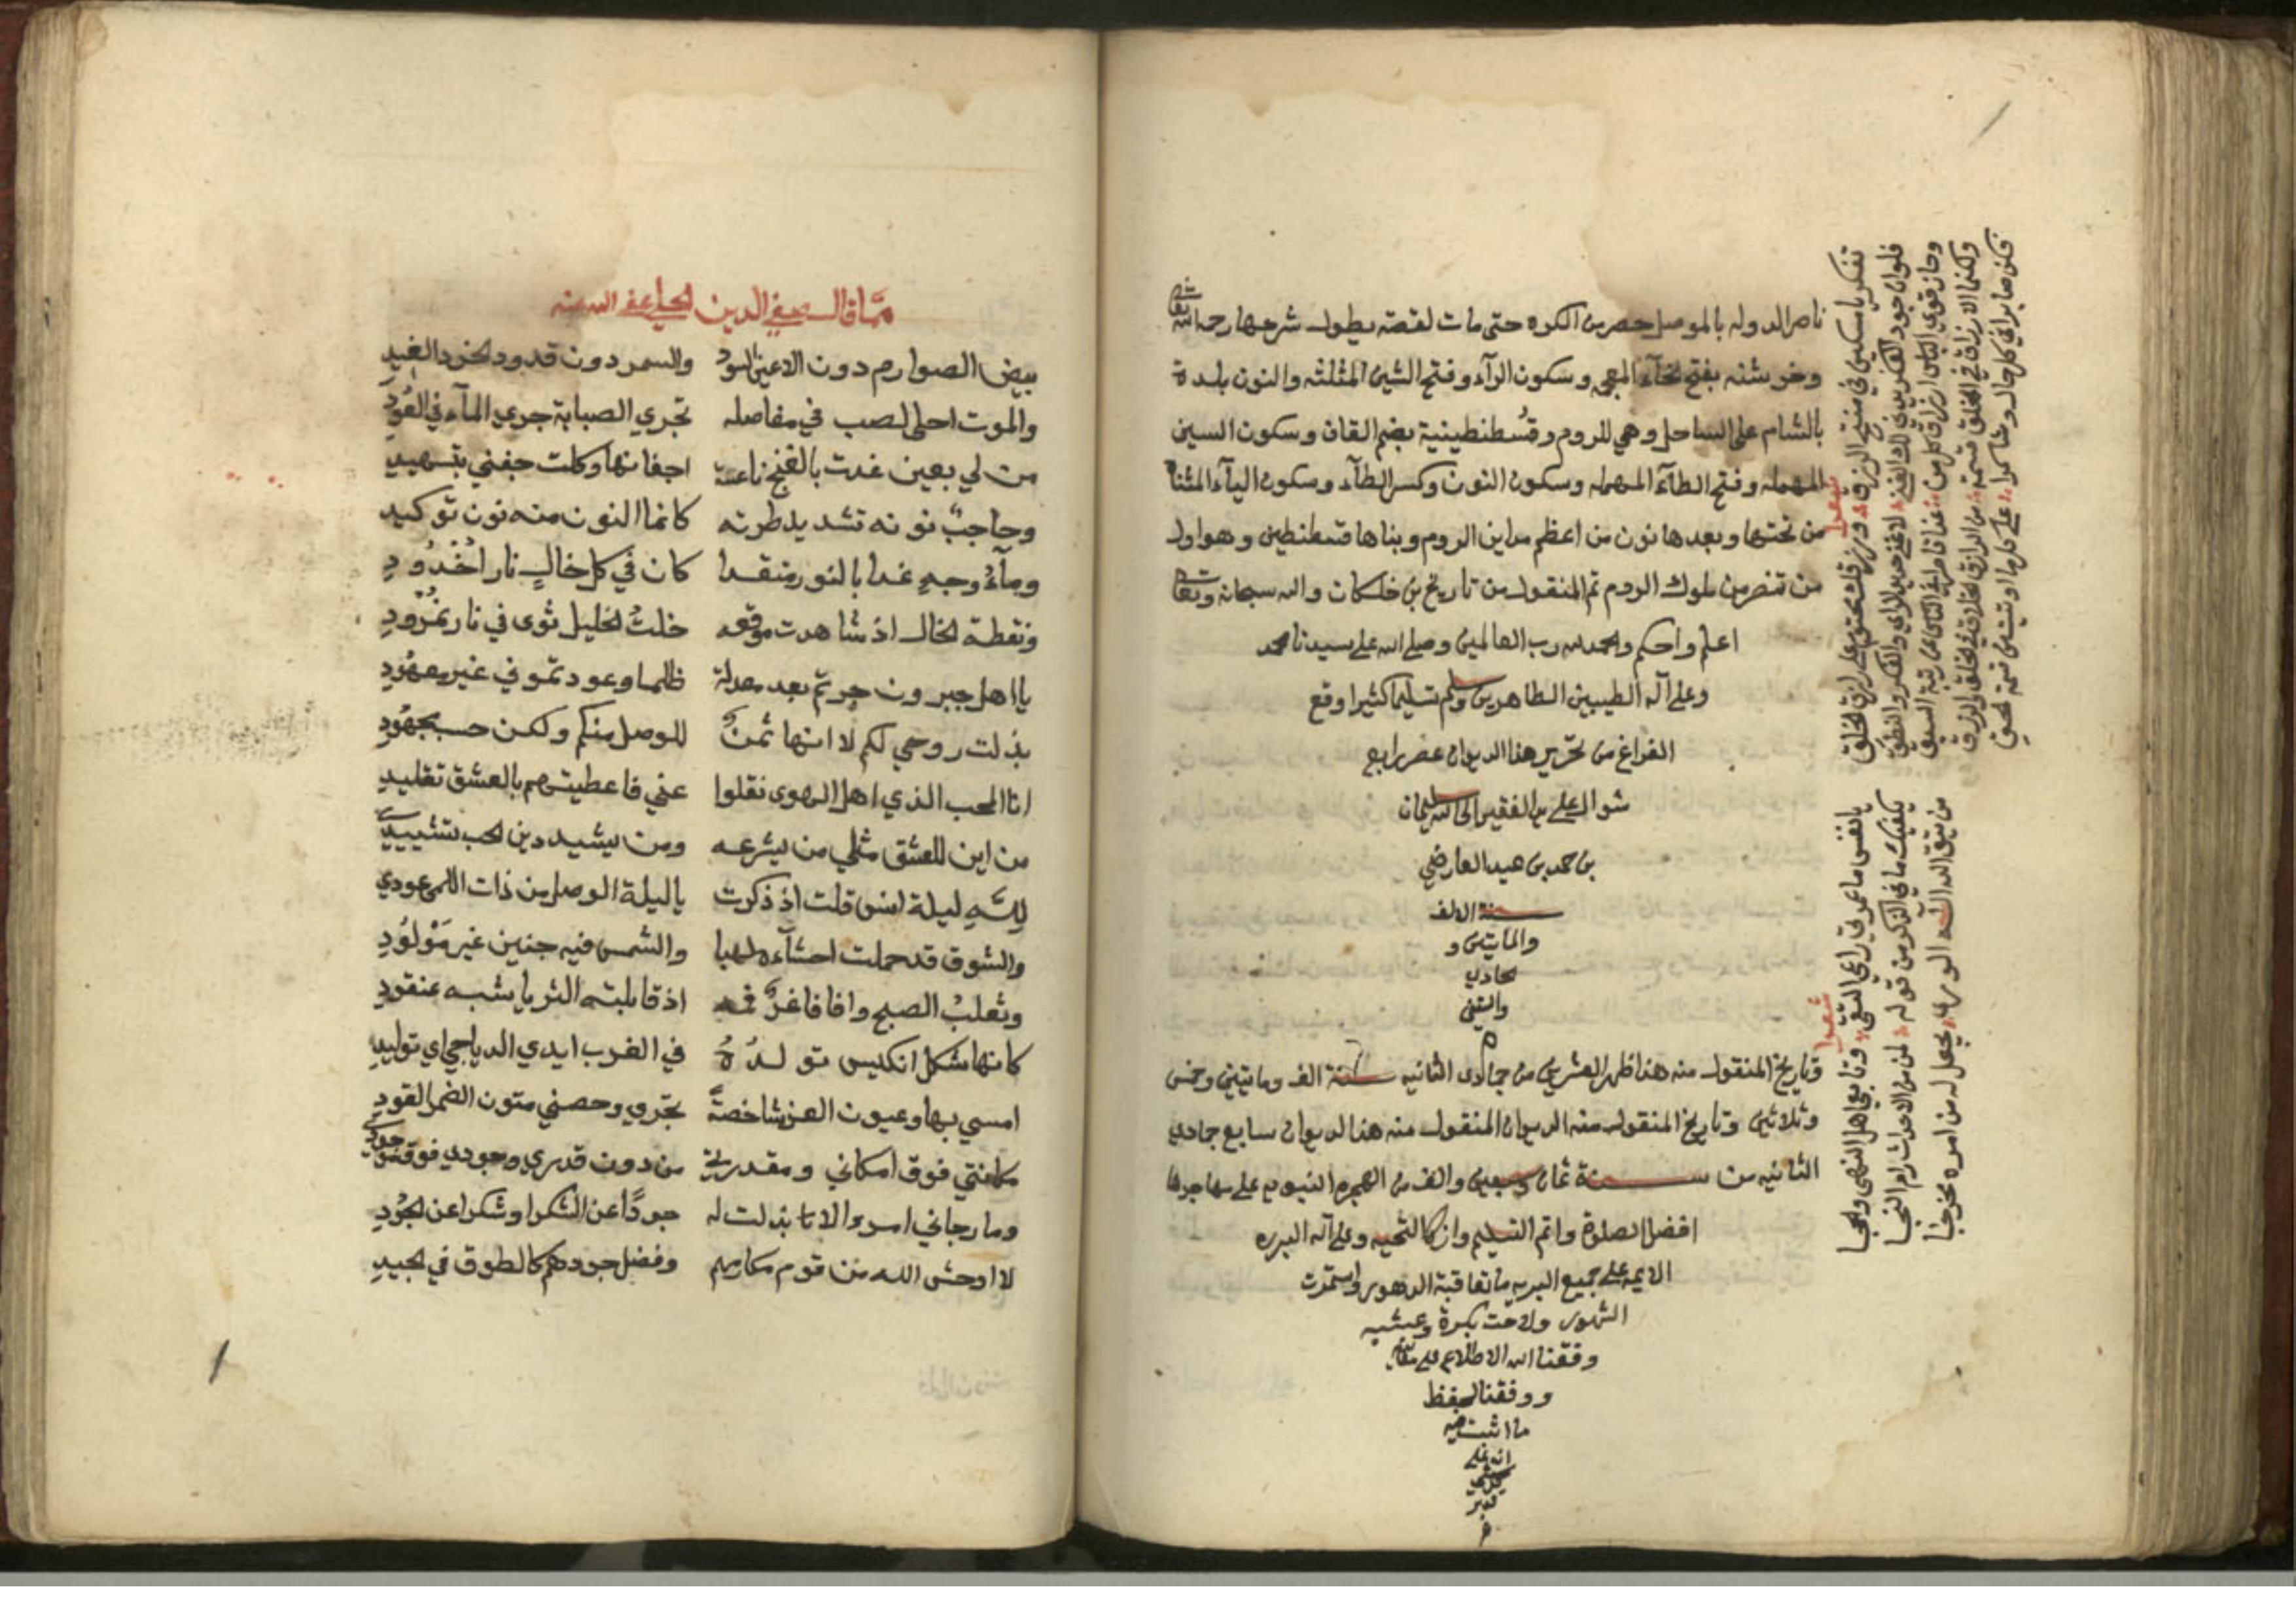 ناصر الدوله بالموصل حصر من الكره حتى مات لقصته يطول شرحها رحمه الله تعالى
وخرشنه بفتح الخآء المعجمه وسكون الرآء وفتح الشين المثلثه والنون بلدة
بالشام على الساحل وهي للروم وقُسطنطينية بضم القاف وسكون السين
المهمله وفتح الطآء المهمله وسكون النون وكسر الطآء وسكون اليآء المثناة
من تحتها وبعدها نون من اعظم مداين الروم وبناها قسطنطين وهو اول
من تنصر من ملوك الروم تم المنقول من تاريخ بن خلكان والله سبحانه وتعالى
اعلم واحكم والحمد لله رب العالمين وصلى الله على سيدنا محمد
وعلى آله الطيبين الطاهرين وسلم تسليما كثيرا وقع
الفراغ من تحرير هذا الديوان عصر رابع
شوال على يد الفقير الى الله سليمان
بن حمد بن عبيد العارضي
سنة الالف
والمايتين و
لحادي
والستين
ه
وتاريخ المنقول منه هذا ظهر العشرين من جمادى الثانيه سنة الف ومايتين وخمس
وثلاثين وتاريخ المنقول منه الديوان المنقول منه هذا الديوان سابع جمادي
الثانيه من سنة ثمان وسبعين والف من الهجره النبويه على مهاجرها
افضل الصلوة واتم التسليم وازكا التحيه وعلى آله البرره
الايمه على جميع البريه ما تعاقبة الدهور واستمرت
الشهور ولاحت بكرة وعشيه
وفقنا الله الاطلاع على معانيه
ووفقنا لحفظ
ما اشتـ
انه على
كل شي
قدير
م
شعرا
تفكر يا مسكين في منتج الرزق ورزقك محتوم على رازق الخلق
فلو ان جود الفكر يدني لك الغنى لاغنى جزيل الراي والفكر والنطق
وحاز قوي الباس ارزاق كل من غدا قاصرا في الناس عن رتبة السبق
ولكنما الارزاق في الخلق قسمة من الرازق الخلاق للخلق والرزق
فكن صابرا في كل حال وشاكرا على كل ما اوتيت من قسمة الحق
شعرا
يا نفس ما عمري راعي التقى وتابعي اهل النهى والحجا
يكفيك ما في الذكر من قوله لمن من الاحداث رام النجا
من يتق الله اله الورى يجعل له من امره مخرجا
ممّا قال صفي الدين الحلي عفى الله عنه
بيض الصوارم دون الاعين السود والسمر دون قدود الخود الغيد
والموت احلى لصب في مفاصله تجري الصبابة جري المآء في العُودِ
من لي بعين غدت بالغنج ناعسة اجفانها وكلت جفني بتسهيد
وحاجبٌ نونه تشديد طرته كانما النون منه نون توكيد
ومآءُ وجهٍ غدا بالنور متقدا كان في كل خالٍ نار اُخْدُودِ
ونقطة الخال اذ شاهدت موقعه خلتُ الخليل ثوى في نار نمْرُودِ
يا اهل جيرون جرتم بعد معدلة ظلما وعودتموني غير معهُودِ
بذلت روحي لكم لا انها ثمنٌ للوصل منكم ولكن حسب مجهُودِ
انا المحب الذي اهل الهوى نقلوا عني فاعطيتهم بالعشق تقليد
من اين للعشق مثلي من يشرعه ومن يشيد دين الحب تشييدي
لِلّهِ ليلة انسٍ قلت اذ ذكرت يا ليلة الوصل من ذات اللمى عودي
والشوق قد حملت احشآءه لهبا والشمس فيه جنين غير مَوْلوُدِ
وثعلبُ الصبح وافا فاغرٌ فمه اذ قابلته الثريا شبه عنقود
كانها شكل انكيس تولدُهُ في الغرب ايدي الدياجي اي توليد
امسي بها وعيون الغز شاخصةً تجري وحصني متون الضمر القود
مكانتي فوق امكاني ومقدرتي من دون قدري وجودي فوق موجودي
وما رجاني امرءٌ الا بذلت له جودًا عن الشكر او شكرا عن الجُودِ
لا اوحش الله من قوم مكارمهم وفضل جودهم كالطوق في الجيد